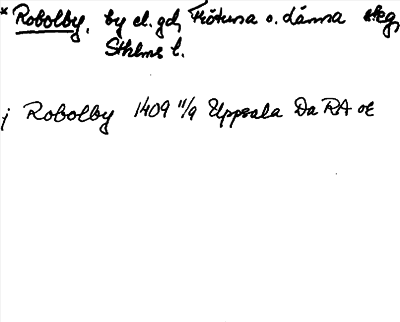 * Robolby, by el. gd, Frötuna o. Länna skg,
Sthlms l.
j Robolby 1409 11/9 Uppsala Da RA or